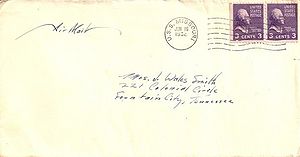 Air Mail
U.S.S. MISSOURI
JUN
UNITED STATES
POSTAGE
3 CENTS 3
UNITED STATES
POSTAGE
3 CENTS 3
Mrs. J. Wales Smith
221 Colonial Circle
Fountain City, Tennessee